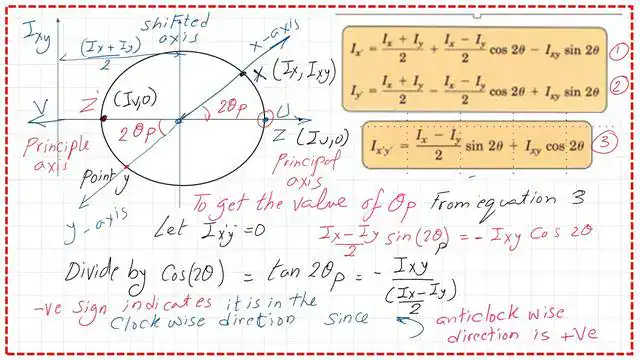 Ixy
shifted
axis
x-axis
(Ix+Iy)
2
X (Ix, Ixy)
V
Z' (Iv,0)
2θp
2θp
U
Z (Iu,0)
Principle
axis
Principal
axis
Point y
y-axis
Ix' = Ix + Iy / 2 + Ix − Iy / 2 cos 2θ − Ixy sin 2θ
1
Iy' = Ix + Iy / 2 − Ix − Iy / 2 cos 2θ + Ixy sin 2θ
2
Ix'y' = Ix − Iy / 2 sin 2θ + Ixy cos 2θ
3
To get the value of θp From equation 3
Let Ix'y' = 0 Ix − Iy / 2 sin(2θ)p = - Ixy Cos 2θ
Divide by Cos(2θ) = tan 2θp = - Ixy / (Ix-Iy) / 2
-ve sign indicates it is in the
clock wise diretion since
anticlock wise
direction is +ve